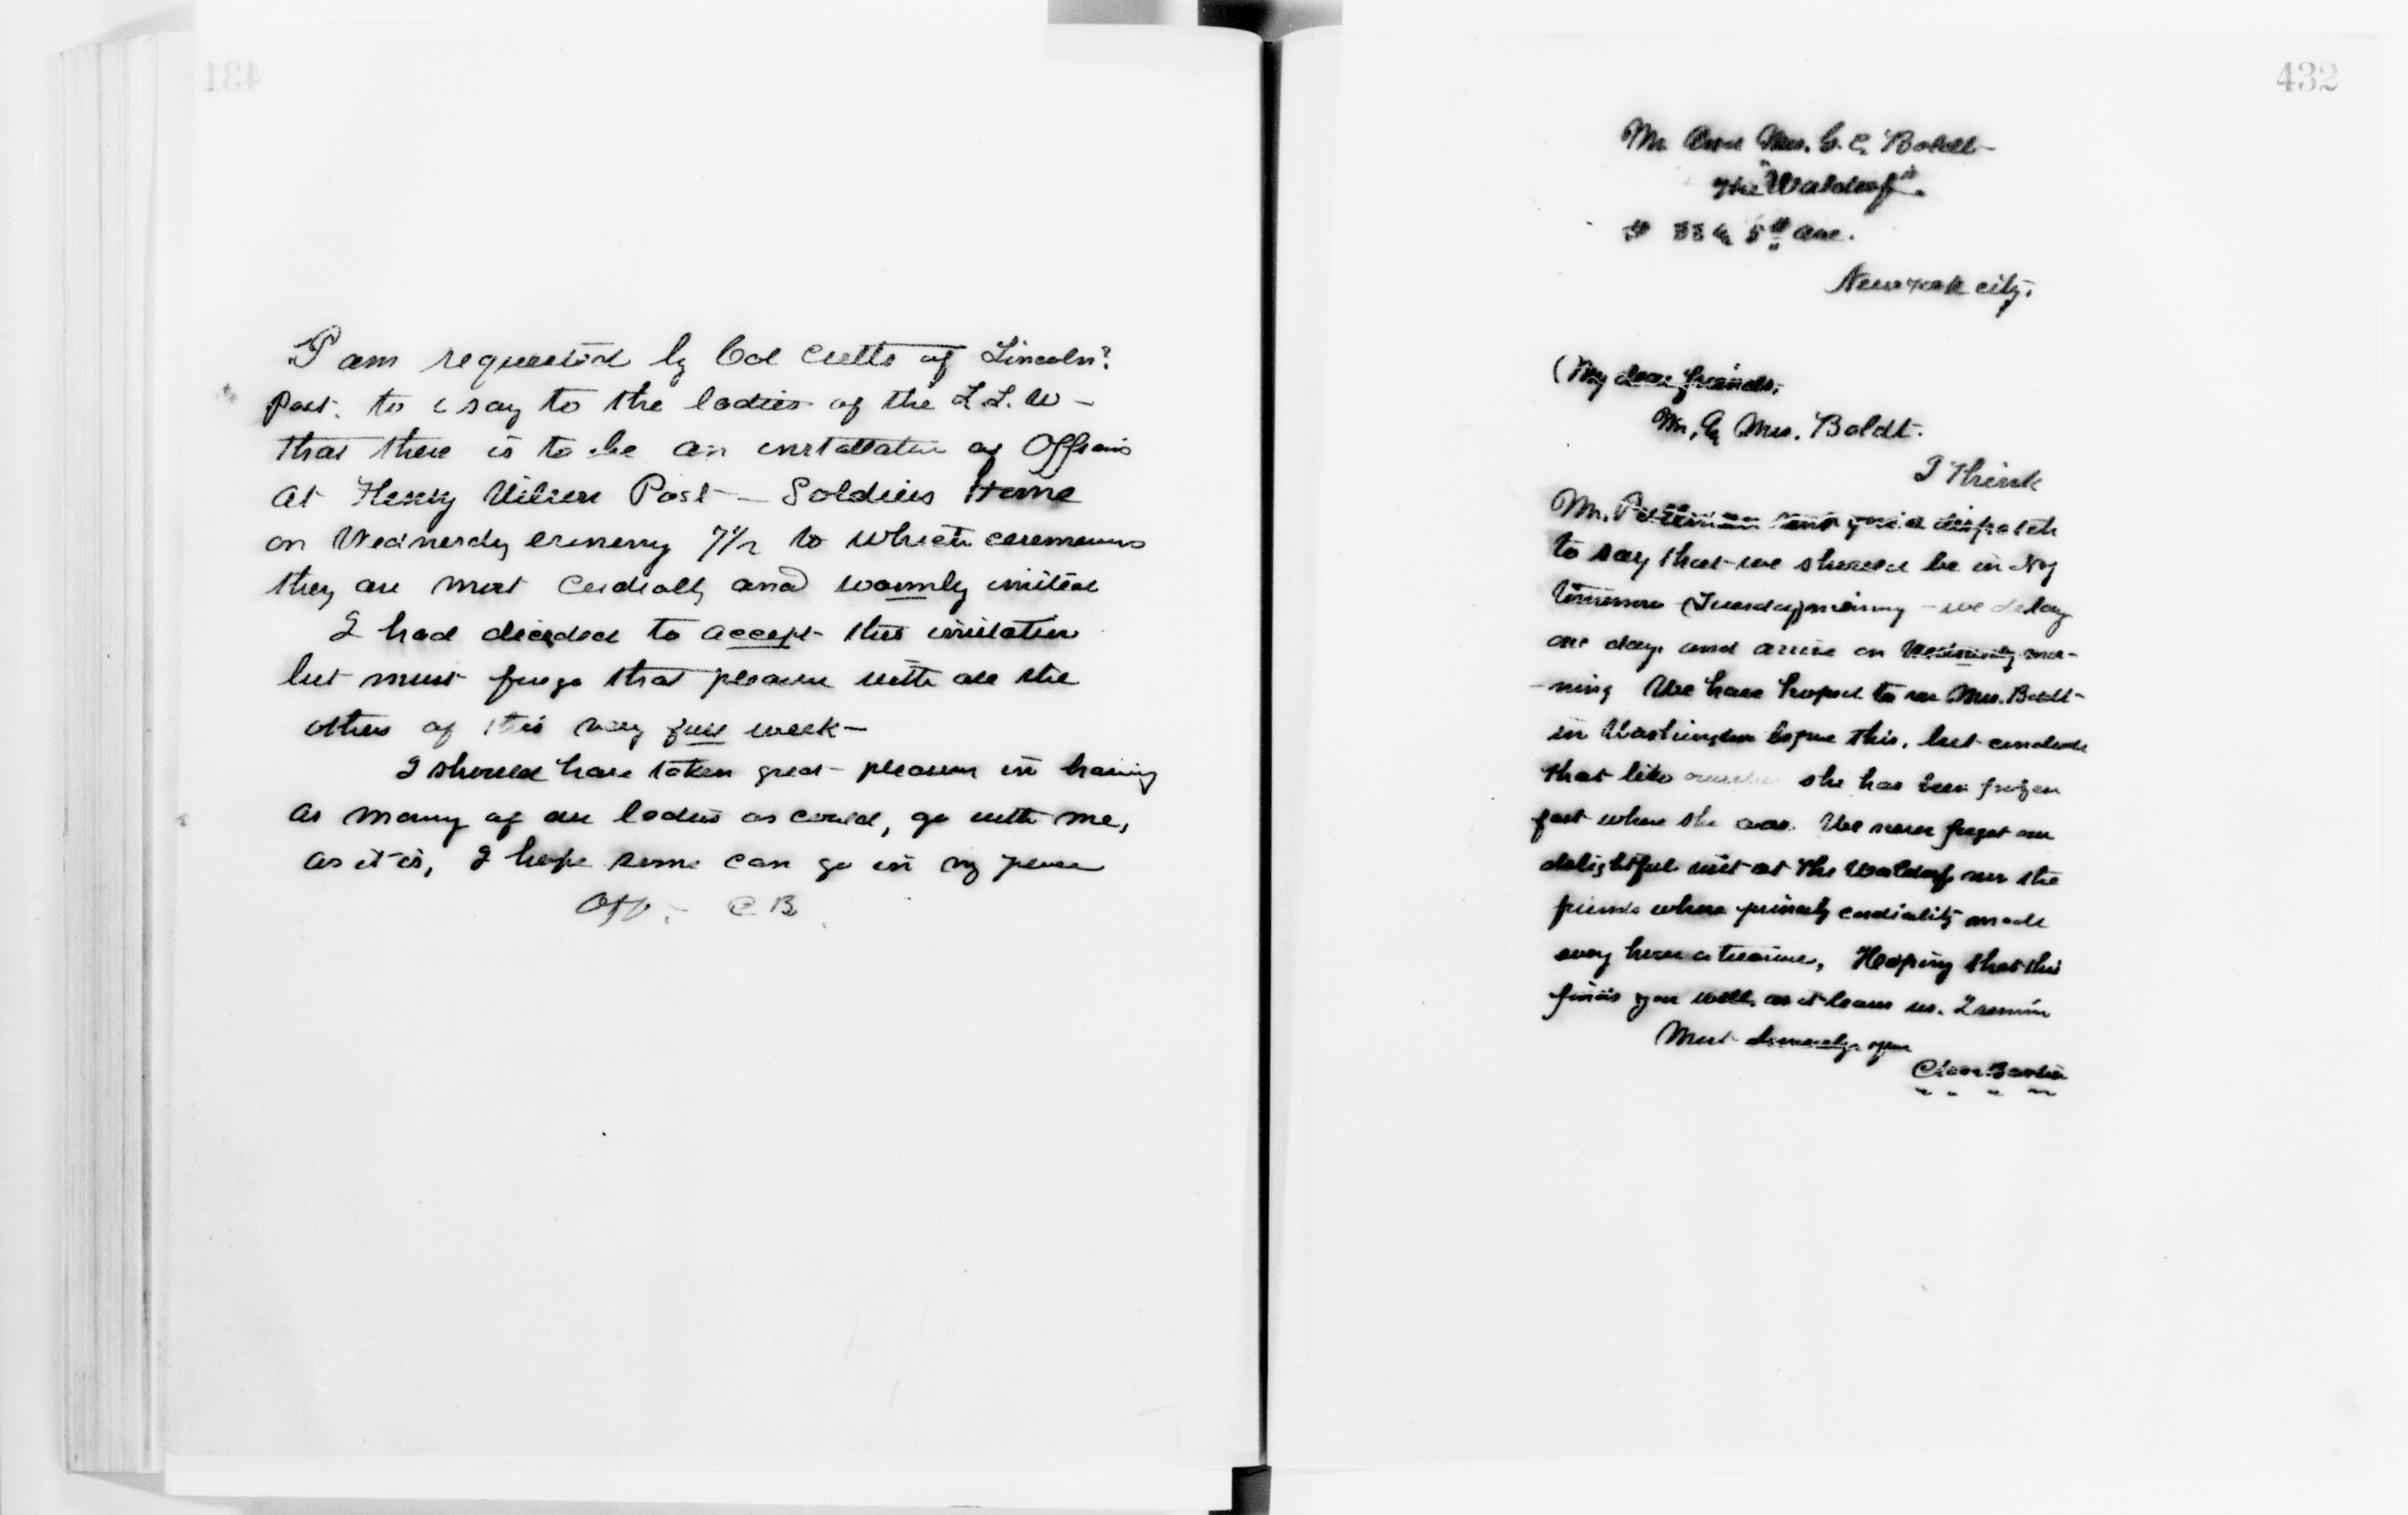 431
I am requested by Col Cutts of Lincoln?
Post. to say to the ladies of the L.L.W –
that there is to be an installation of Officers
at Henry Wilson Post – Soldiers Home
on Wednesdy evening 7 1/2 to which ceremonies
they are most cordially and warmly invited
I had decided to accept this invitation
but must forego that pleasure with all the
others of this very full week –
I should have taken great pleasure in having
as many of our ladies as could, go with me,
as it is, I hope some can go in my place
C B.
432
Mr. and Mrs. G. C. Boldt
The "Waldorf".
5th Ave.
New York city.
(My dear friends,
Mr. & Mrs. Boldt.
I think
Mr. Pullman sent you a dispatch
to say that we should be in NY
tomorrow (Tuesday) morning – we delay
one day, and arrive on Wednesday mor-
-ning We have hoped to see Mrs. Boldt
in Washington before this, but conclude
that like ourselves she has been frozen
fast where she was. We never forget our
delightful visit at The Waldorf, nor the
friends whose princely cordiality made
every hour a treasure, Hoping that this
finds you well, as it leaves us. I remain
Most sincerely yours
Clara Barton